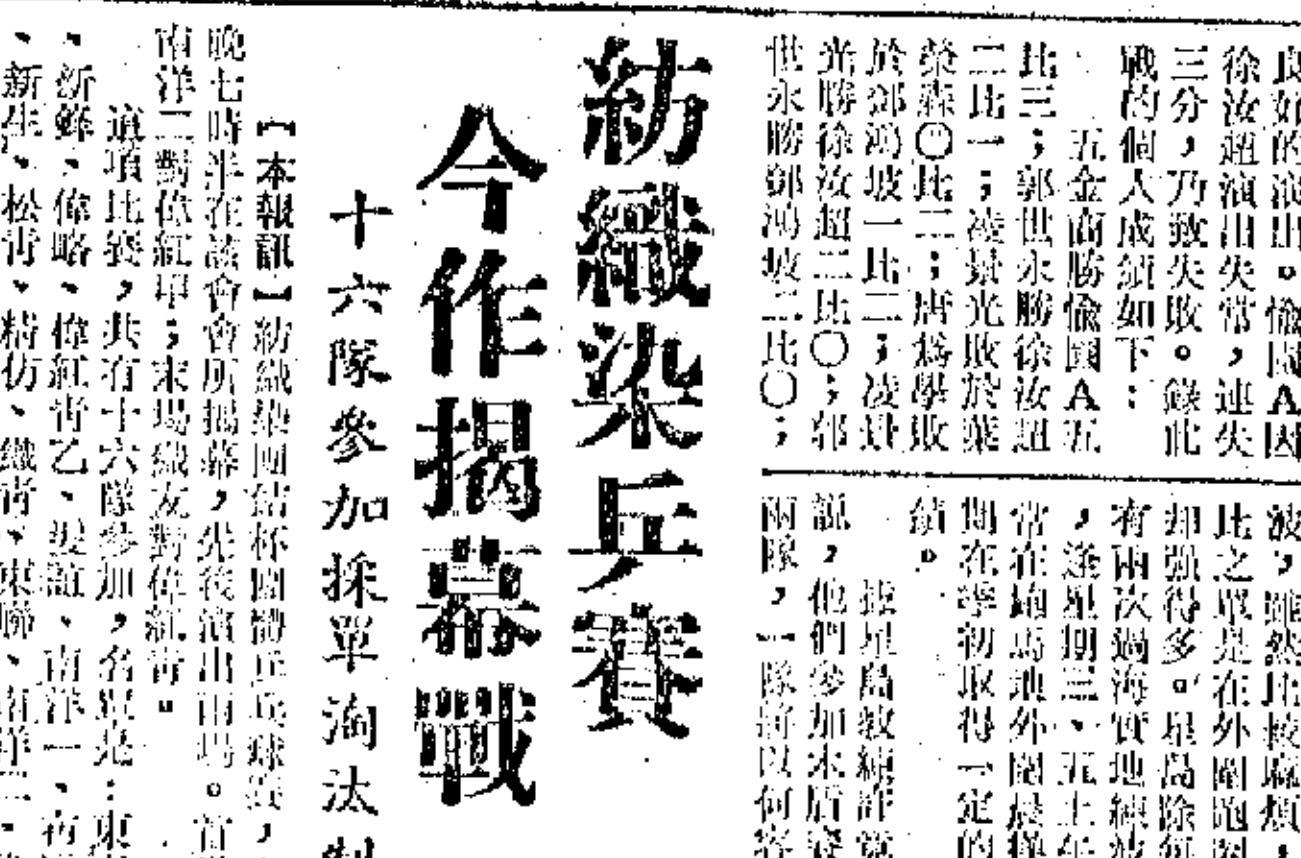 良好的演出。愉園A因
徐汝超演出失常，連失
三分，乃致失敗。錄此
戰的個人成績如下：
五金商勝愉園A五
比三；郭世永勝徐汝超
二比一；凌景光敗於葉
榮森〇比二；唐爲學敗
於鄧鴻坡一比二；凌景
光勝徐汝超二比〇；郭
世永勝鄧鴻坡二比〇；
波，雖然比較麻煩，
比之單是在外圍跑圈
却强得多。星島除每
有兩次過海實地練波
，逢星期三、五上午
常在跑馬地外圍晨操
期在季初取得一定的
績。
據星島教練許竟
説，他們參加木盾賽
兩隊，一隊將以何容
紡織染乒賽
今作揭幕戰
十六隊參加採單淘汰制
【本報訊】紡織染團結杯團體乒乓球賽，
晚七時半在該會會所揭幕，先後演出兩場。首
南洋二對偉紅甲；末場織友對偉紅青。
這項比賽，共有十六隊參加，名單是：東
、新鮮、偉略、偉紅青乙、友誼、南洋一、
、新生、松青、精仿、織青、東聯、南洋二、